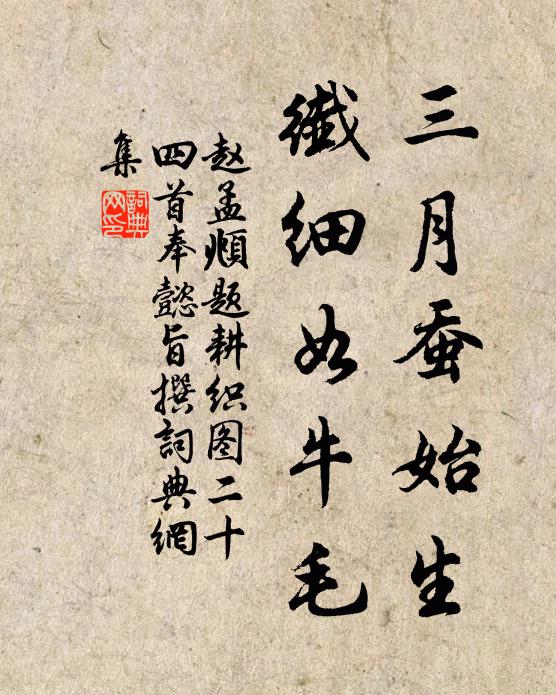 三月蚕始生
纎细如牛毛
赵孟頫题耕织图二十
四首奉懿旨撰詞典網
集
詞典網印